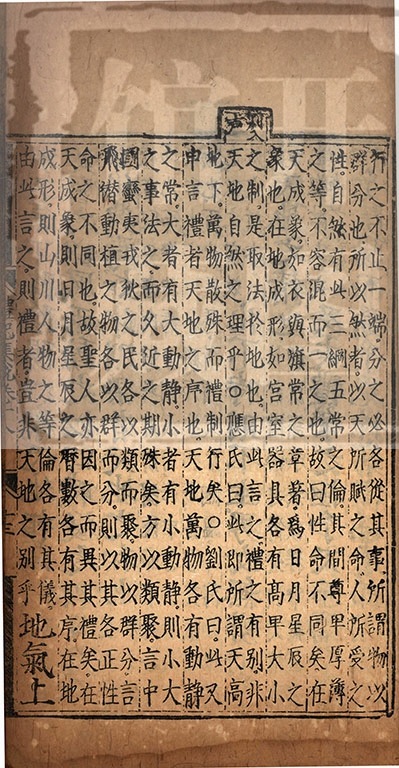 行之不止一端分之必各從其事所謂物以
群分也所以然者以天所賦之命人所受之
性自然有此三綱五常之倫其間尊卑厚薄
之等不容混而一之也故曰性命不同矣在
天成象如衣與旗常之章著為日月星辰之
象也在地成形如宮室器具各有高卑大小
之制是取法於地也由此言之禮之有別非
天地自然之理乎○應氏曰此即所謂天高
地下萬物散殊而禮制行矣○劉氏曰此又
申言禮者天地之序也天地萬物各有動靜
之常大者有大動靜小者有小動靜則小大
之事法之而久近之期殊矣方以類聚言中
國蠻夷戎狄之民各以類而聚物以群分言
飛潛動植之物各以群而分則以其各正性
命之不同也故聖人亦因之而異其禮矣在
天成象則日月星辰之曆數各有其序在地
成形則山川人物之等倫各有其儀
由此言之則禮者豈非天地之別乎地氣上